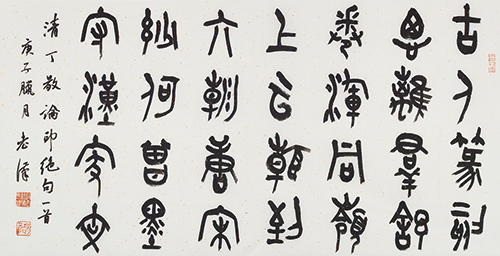 古人篆刻
思離羣舒
卷渾同嶺
上云看到
六朝唐宋
妙何曾墨
守漢家文
清丁敬論印絕句一首
庚子臘月